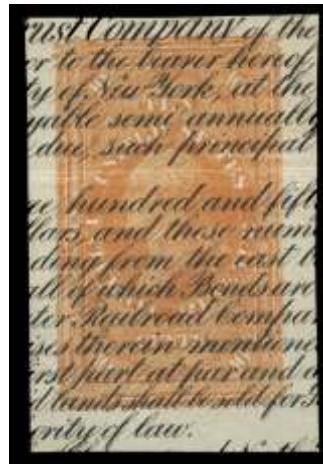 rust Company of the
or to the bearer hereof
ty of New York, at the
yable semi annually
due, such principal
ee hundred and fift
llars, and these num
ding from the east b
all of which Bonds are
ter Railroad Compan
ises therein mentione
irst part at par and
d lands shall be sold for
ority of law.